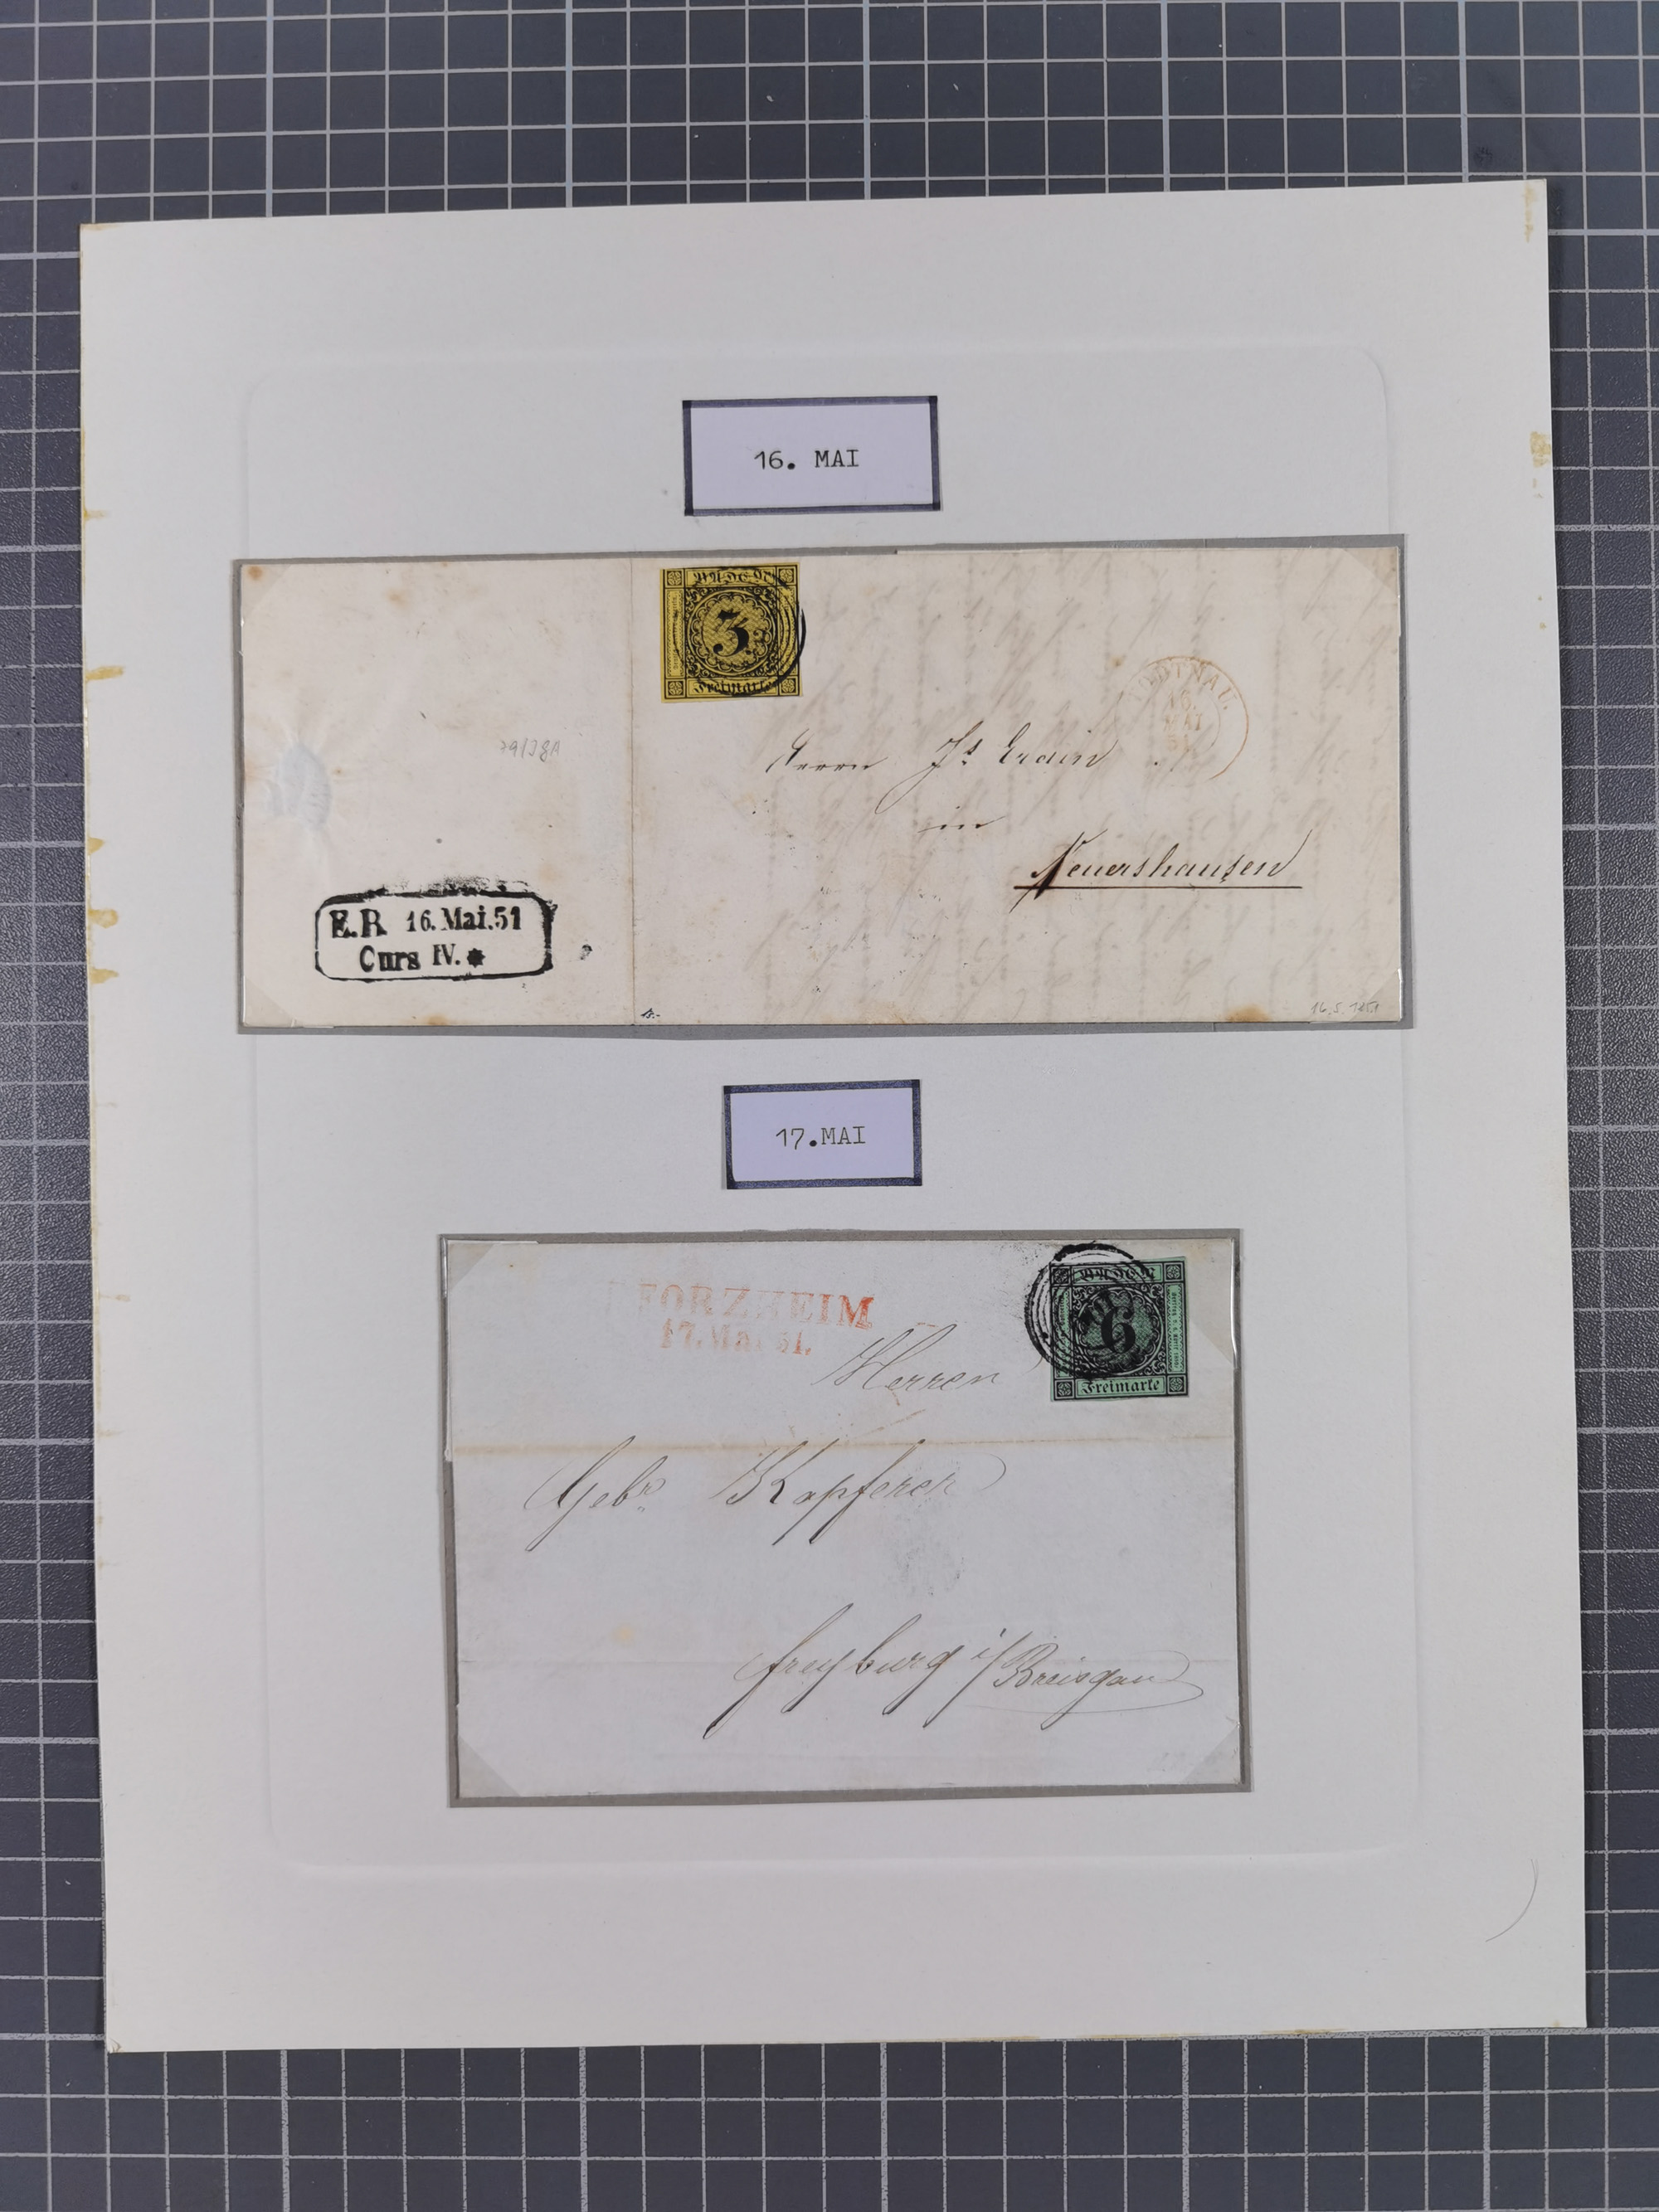 16. MAI
3
Freimarke
TODTNAU.
16
MAI
51
79/38A
Herrn Js
in
Neuershausen
E.B. 16. Mai. 51
Curs IV. *
16.5.1851
17.MAI
PFORZHEIM
17. Mai 51.
6
Freimarke
Herren
Gebr. Kapferer
Freyburg i/Breisgau